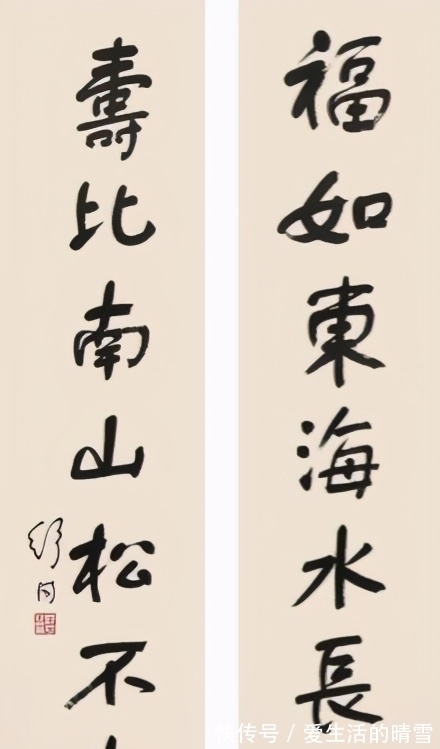 福如東海水長
壽比南山松不
舒同
快传号 / 爱生活的晴雪